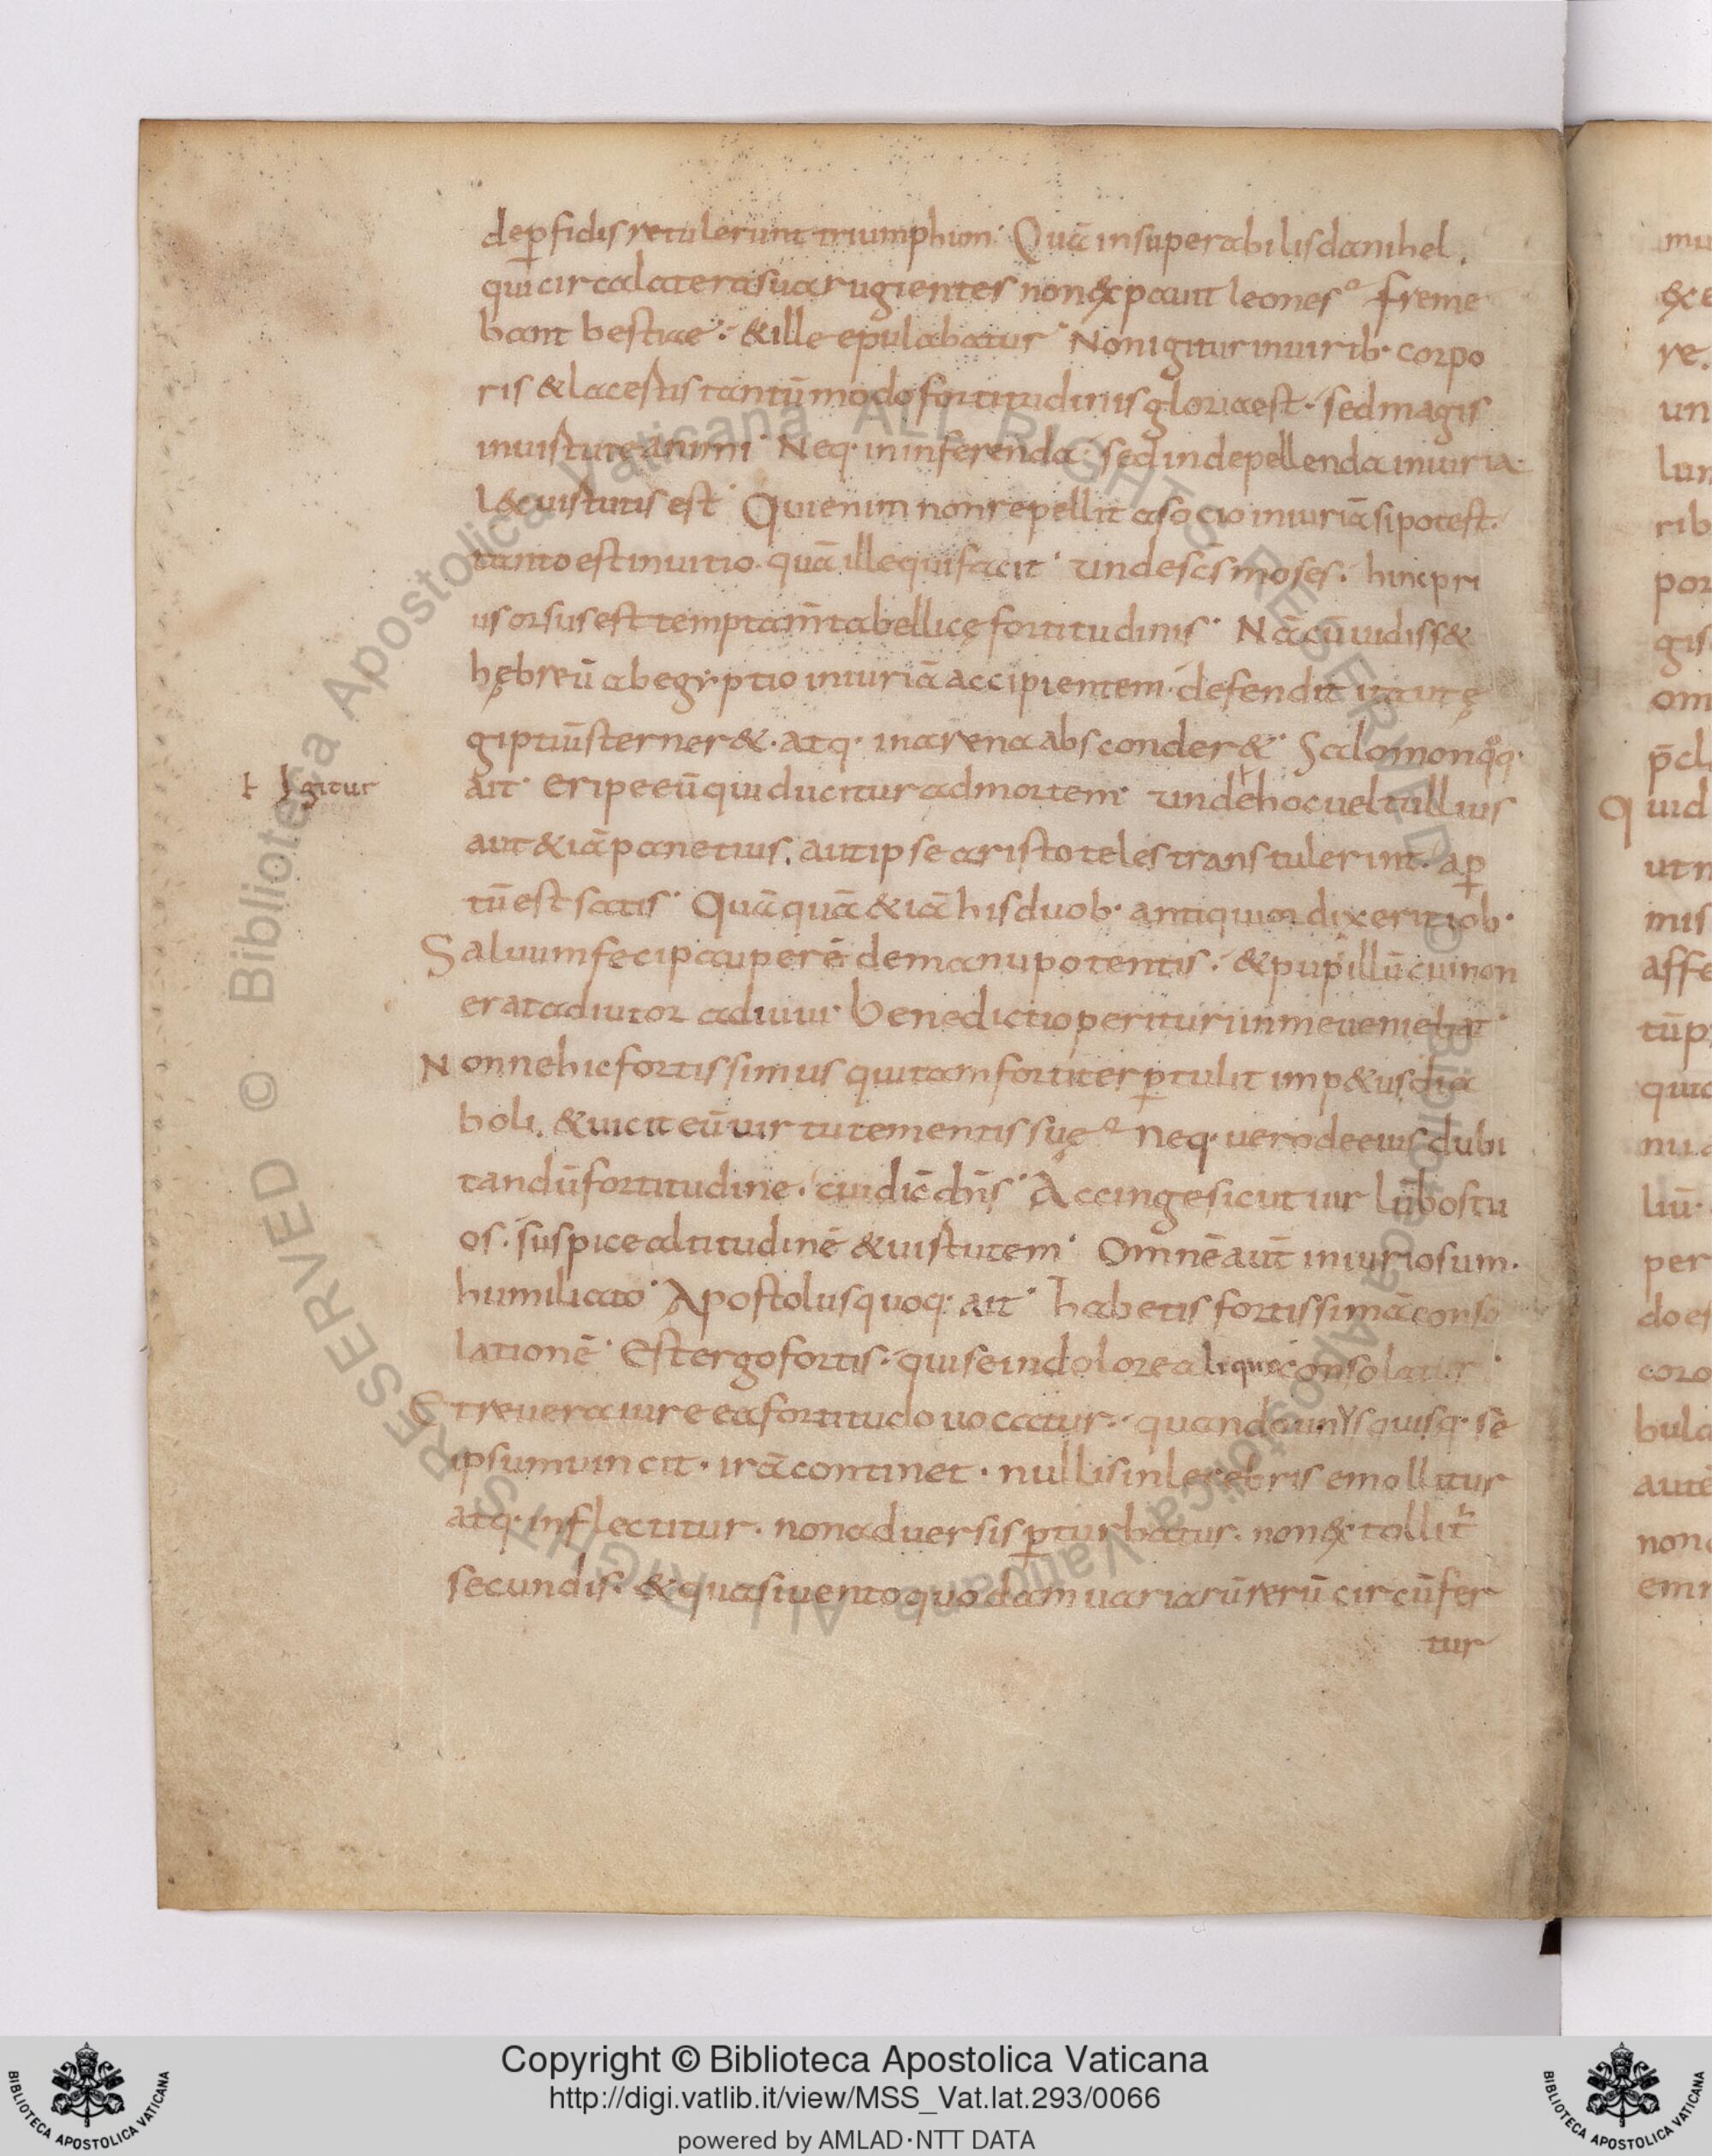 dep̱fidis retulerunt triumphum· Quā insuperabilis danihel.
qui circa latera sua rugientes non expauit leones· freme
bant bestiae·: & ille epulabatur· Non igitur in uirib· corpo
ris & lacertis tantūmodo fortitudinis gloria est· sed magis
in uirtute animi· Neq· in inferenda· sed in depellenda iniuria
lex uirtutis est· Qui enim non repellit a socio iniuriā si potest·
tanto est in uitio· quā ille qui facit· unde scs moses· hinc pri
us orsus est temptam̄ta bellicę fortitudinis· Nā cū uidiss&
hębreū ab egyptio iniuriā accipientem· defendit ita ut ę
giptiū sterner&· atq· in arena absconder&· Salomon qq·
ait· eripe eū qui ducitur ad mortem· unde hoc uel tullius
Igitur
aut &iā panetius. aut ipse aristoteles transtulerint· ap̱
tū est satis· Quāquā &iā his duob· antiquior dixerit iob·
Saluum feci pauperē de manu potentis· & pupillū cui non
erat adiutor adiuui· benedictio perituri in me ueniebat·
Nonne hic fortissimus qui tam fortiter p̱tulit imp&us dia
boli. & uicit eū uirtute mentis suę· neq· uero de eius dubi
tandū fortitudine· cui dic̄ dn̄s· Accinge sicut uir lūbos tu
os· suspice altitudinē & uirtutem· Omnē aut̄ iniuriosum·
humiliato· Apostolus quoq· ait· habetis fortissimā conso
lationē· Est ergo fortis· qui se in dolore aliquo consolatur·
Et re uera iure ea fortitudo uocatur· quando unusquisq· sē
ipsum uincit· irā continet· nullis inlecebris emollitur
atq· inflectitur· non aduersis p̱turbatur· non extollit̄
secundis· & quasi uento quodam uariarū rerū circūfer
tur
Copyright © Biblioteca Apostolica Vaticana
http://digi.vatlib.it/view/MSS_Vat.lat.293/0066
powered by AMLAD·NTT DATA